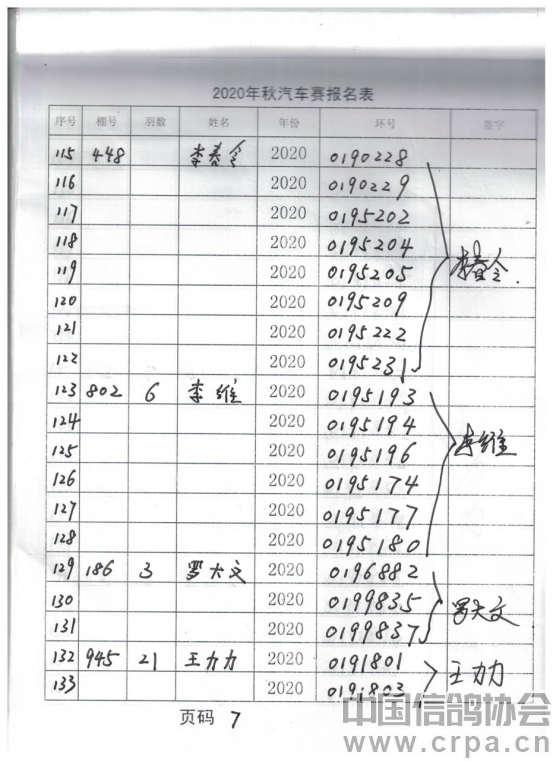 2020年秋汽车赛报名表
序号 棚号 羽数 姓名 年份 环号 签字
115 448 李春令 2020 0190228
116 2020 0190229
117 2020 0195202
118 2020 0195204
119 2020 0195205 李春令
120 2020 0195209
121 2020 0195222
122 2020 0195231
123 802 6 李维 2020 0195193
124 2020 0195194
125 2020 0195196 李维
126 2020 0195174
127 2020 0195177
128 2020 0195180
129 186 3 罗大文 2020 0196882
130 2020 0199835 罗大文
131 2020 0199837
132 945 21 王力力 2020 0191801 王力力
133 2020 0191803
页码 7
中国信鸽协会
www.crpa.cn